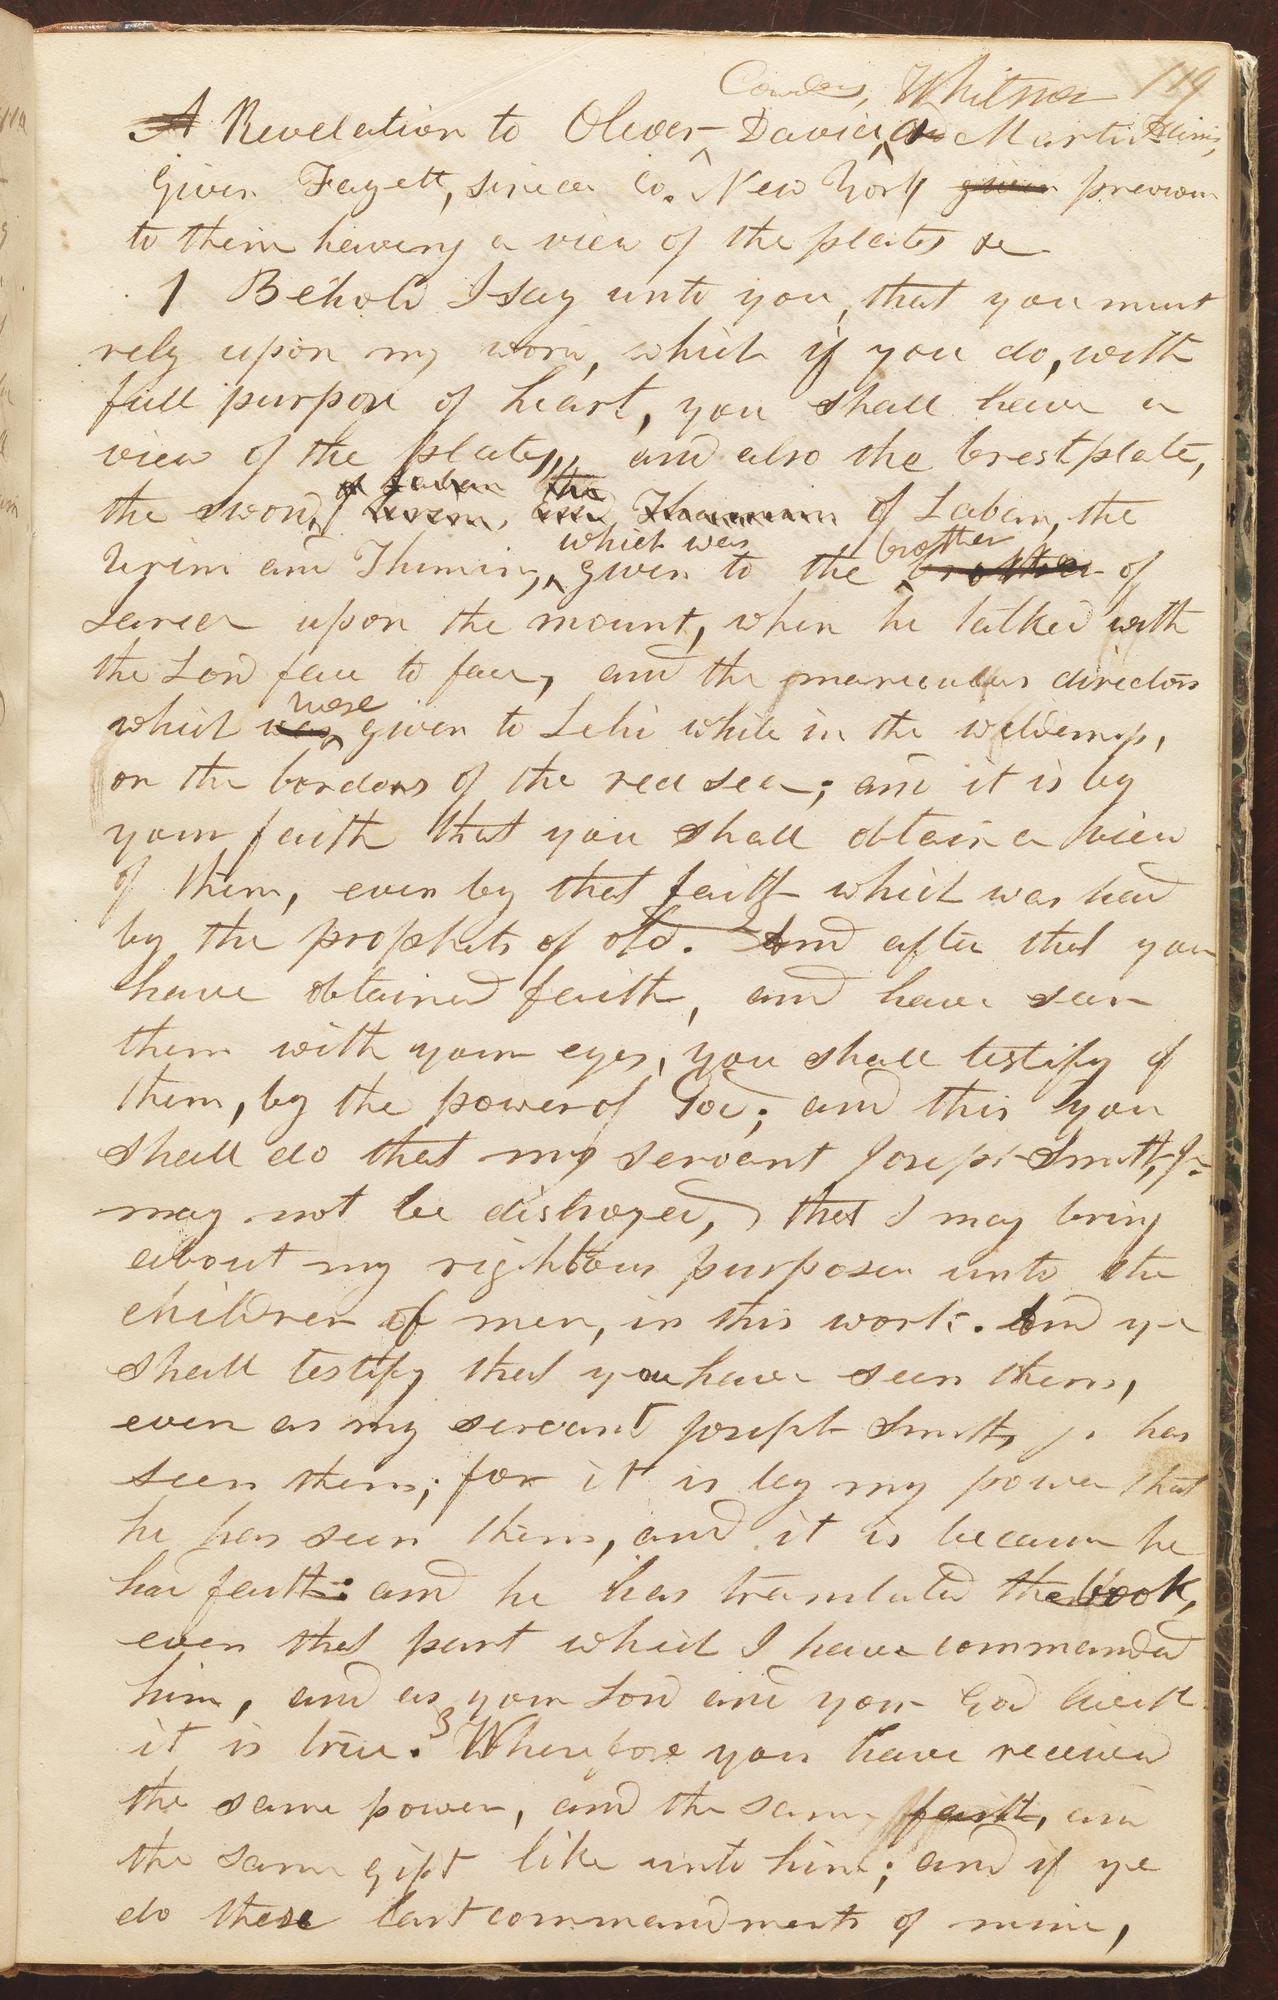 Cowdery, Whitmer 119
A Revelation to Oliver David, and Martin Harris,
Given Fayett, seneca Co. New York given previous
to them haveing a view of the plates &c
1 Behold I say unto you, that you must
rely upon my word, which if you do, with
full purpose of heart, you shall have a
view of the plates, and also the brestplate,
of Laban the
the sword, and Thummim of Laban, the
which was brother
Urim and Thumim, given to the brother of
Jared upon the mount, when he talked with
the Lord face to face, and the marculous directors
were
which was given to Lehi while in the wilderness,
on the borders of the red sea; and it is by
your faith that you shall obtain a view
of them, even by that faith which was had
by the prophets of old. 2 And after that you
have obtained faith, and have seen
them with your eyes, you shall testify of
them, by the power of God; and this you
shall do that my servant Joseph Smith, Jr.
may not be distroyed, that I may bring
about my rightous purposes unto the
children of men, in this work. And ye
shall testify that you have seen them,
even as my servant Joseph Smith jr. has
seen them; for it is by my power that
he has seen them, and it is because he
had faith: and he has translated the book,
even that part which I have commanded
him, and as your Lord and your God liveth
it is true. 3 Wherefore you have received
the same power, and the same faith, and
the same gift like unto him; and if ye
do these last commandments of mine,